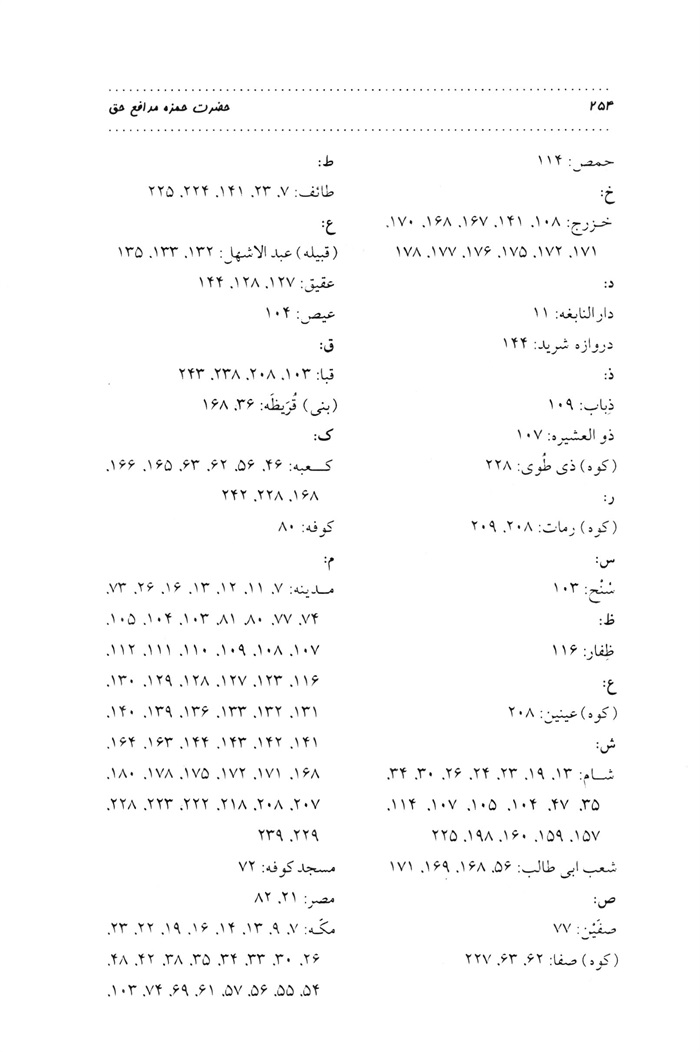 ۲۵۴
حضرت حمزه مدافع حق
حمص: ۱۱۴
خ:
خـزرج: ۱۰۸، ۱۴۱، ۱۶۷، ۱۶۸، ۱۷۰،
۱۷۱، ۱۷۲، ۱۷۵، ۱۷۶، ۱۷۷، ۱۷۸
د:
دارالنابغه: ۱۱
دروازه شرید: ۱۴۴
ذ:
ذِباب: ۱۰۹
ذو العشیره: ۱۰۷
(کوه) ذی طُوی: ۲۲۸
ر:
(کوه) رمات: ۲۰۸، ۲۰۹
س:
سُنُح: ۱۰۳
ظ:
ظِفار: ۱۱۶
ع:
(کوه) عینین: ۲۰۸
ش:
شـام: ۱۳، ۱۹، ۲۳، ۲۴، ۲۶، ۳۰، ۳۴،
۳۵، ۴۷، ۱۰۴، ۱۰۵، ۱۰۷، ۱۱۴،
۱۵۷، ۱۵۹، ۱۶۰، ۱۹۸، ۲۲۵
شعب ابی طالب: ۵۶، ۱۶۸، ۱۶۹، ۱۷۱
ص:
صفّیْن: ۷۷
(کوه) صفا: ۶۲، ۶۳، ۲۲۷
ط:
طائف: ۷، ۲۳، ۱۴۱، ۲۲۴، ۲۲۵
ع:
(قبیله) عبد الاشهل: ۱۳۲، ۱۳۳، ۱۳۵
عقیق: ۱۲۷، ۱۲۸، ۱۴۴
عیص: ۱۰۴
ق:
قبا: ۱۰۳، ۲۰۸، ۲۳۸، ۲۴۳
(بنی) قُرَیظَه: ۳۶، ۱۶۸
ک:
کـــعبه: ۴۶، ۵۶، ۶۲، ۶۳، ۱۶۵، ۱۶۶،
۱۶۸، ۲۲۸، ۲۴۲
کوفه: ۸۰
م:
مـدینه: ۷، ۱۱، ۱۲، ۱۳، ۱۶، ۲۶، ۷۳،
۷۴، ۷۷، ۸۰، ۸۱، ۱۰۳، ۱۰۴، ۱۰۵،
۱۰۷، ۱۰۸، ۱۰۹، ۱۱۰، ۱۱۱، ۱۱۲،
۱۱۶، ۱۲۳، ۱۲۷، ۱۲۸، ۱۲۹، ۱۳۰،
۱۳۱، ۱۳۲، ۱۳۳، ۱۳۶، ۱۳۹، ۱۴۰،
۱۴۱، ۱۴۲، ۱۴۳، ۱۴۴، ۱۶۳، ۱۶۴،
۱۶۸، ۱۷۱، ۱۷۲، ۱۷۵، ۱۷۸، ۱۸۰،
۲۰۷، ۲۰۸، ۲۱۸، ۲۲۲، ۲۲۳، ۲۲۸،
۲۲۹، ۲۳۹
مسجد کوفه: ۷۲
مصر: ۲۱، ۸۲
مکّه: ۷، ۹، ۱۳، ۱۴، ۱۶، ۱۹، ۲۲، ۲۳،
۲۶، ۳۰، ۳۳، ۳۴، ۳۵، ۳۸، ۴۲، ۴۸،
۵۴، ۵۵، ۵۶، ۵۷، ۶۱، ۶۹، ۷۴، ۱۰۳،